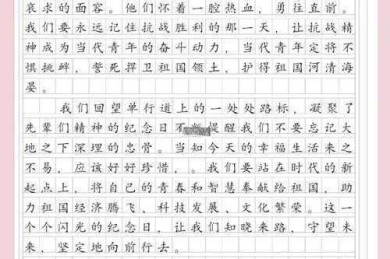 哀求的面容。他们怀着一腔热血，勇往直前。
我们要永远记住抗战胜利的那一天，让抗战精
神成为当代青年的奋斗动力，当代青年定将不
惧挑衅，誓死捍卫祖国领土，护得祖国河清海
晏。
我们回望单行道上的一处处路标，凝聚了
先辈们精神的纪念日不提醒我们不要忘记大
地之下深理的忠骨。当知今天的幸福生活来之
不易，应该好好珍惜，。我们要站在时代的新
起点上，将自己的青春和智慧奉献给祖国，助
力祖国经济腾飞、科技发展、文化繁荣。这一
个个闪光的纪念日，让我们知晓来路，守望未
来，坚定地向前行去。